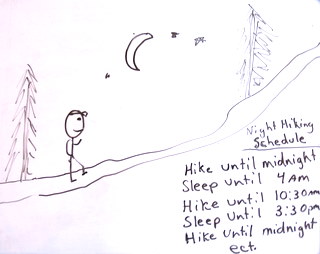 Night Hiking
Schedule
Hike until midnight
Sleep until 4 AM
Hike until 10:30am
Sleep until 3:30pm
Hike until midnight
ect.